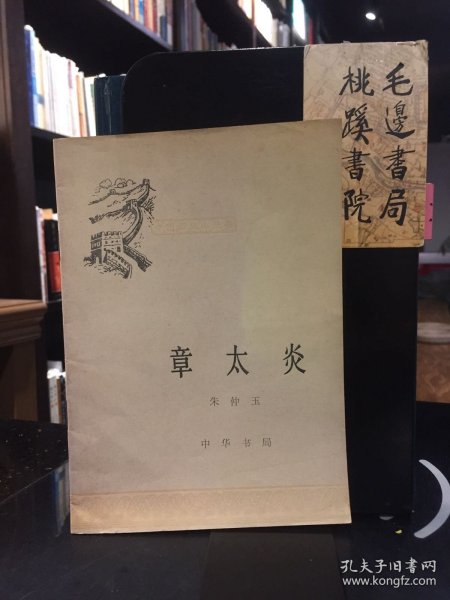 毛邊書局
桃蹊書院
章太炎
朱仲玉
中华书局
孔夫子旧书网
www.kongfz.com